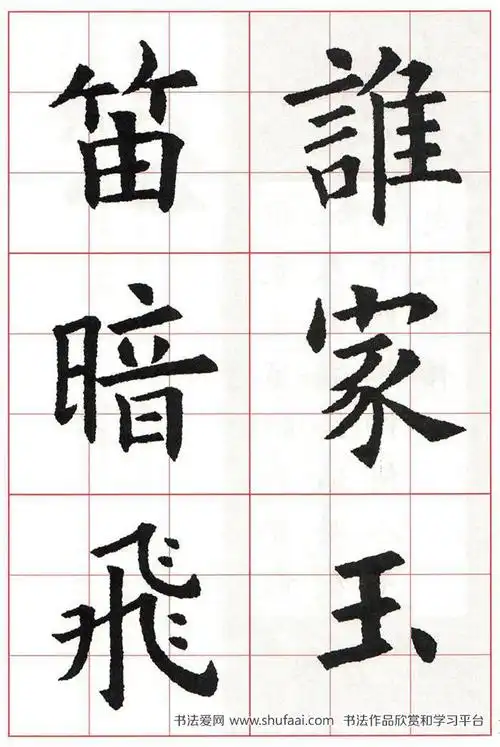 誰家玉
笛暗飛
书法爱网 www.shufaai.com 书法作品欣赏和学习平台